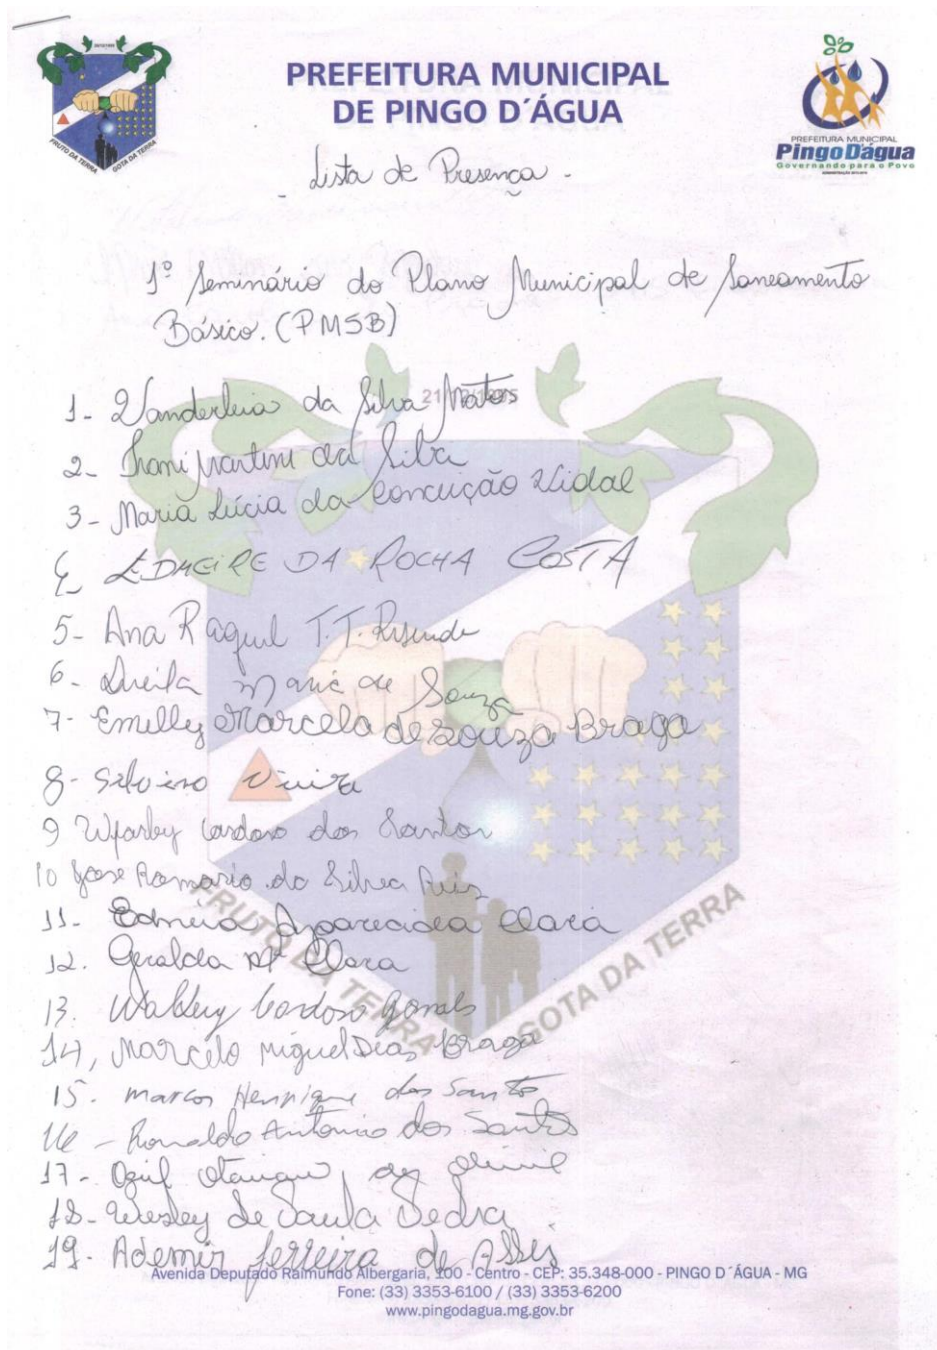 20/12/1995
FRUTO DA TERRA
GOTA DA TERRA
PREFEITURA MUNICIPAL
DE PINGO D´ÁGUA
PREFEITURA MUNICIPAL
PingoDágua
Governando para o Povo
- Lista de Presença -
1º Seminário do Plano Municipal de Saneamento
Básico. (PMSB)
21/12/1995
1- Vanderleia da Silva Matos
2- Martins da Silva
3- Maria Lúcia da Conceição Vidal
4- EDMEIRE DA ROCHA COSTA
5- Ana Raquel T. T. Resende
6- Maria de Souza
7- Emilley Marcela de Souza Braga
8- Silvino Vieira
9 Cardoso dos Santos
10 Jose Romario da Silva Reis
11- Edneia Aparecida Clara
12. Geralda Mª Clara
13. Cardoso
14, Marcelo Miguel Dias Braga
15. Marcos Henrique dos Santos
16 - Ronaldo Antonio dos Santos
17-
18- Wesley de Paula Pedra
19- Ademir Ferreira de Assis
FRUTO DA TERRA
GOTA DA TERRA
Avenida Deputado Raimundo Albergaria, 100 - Centro - CEP: 35.348-000 - PINGO D´ÁGUA - MG
Fone: (33) 3353-6100 / (33) 3353-6200
www.pingodagua.mg.gov.br